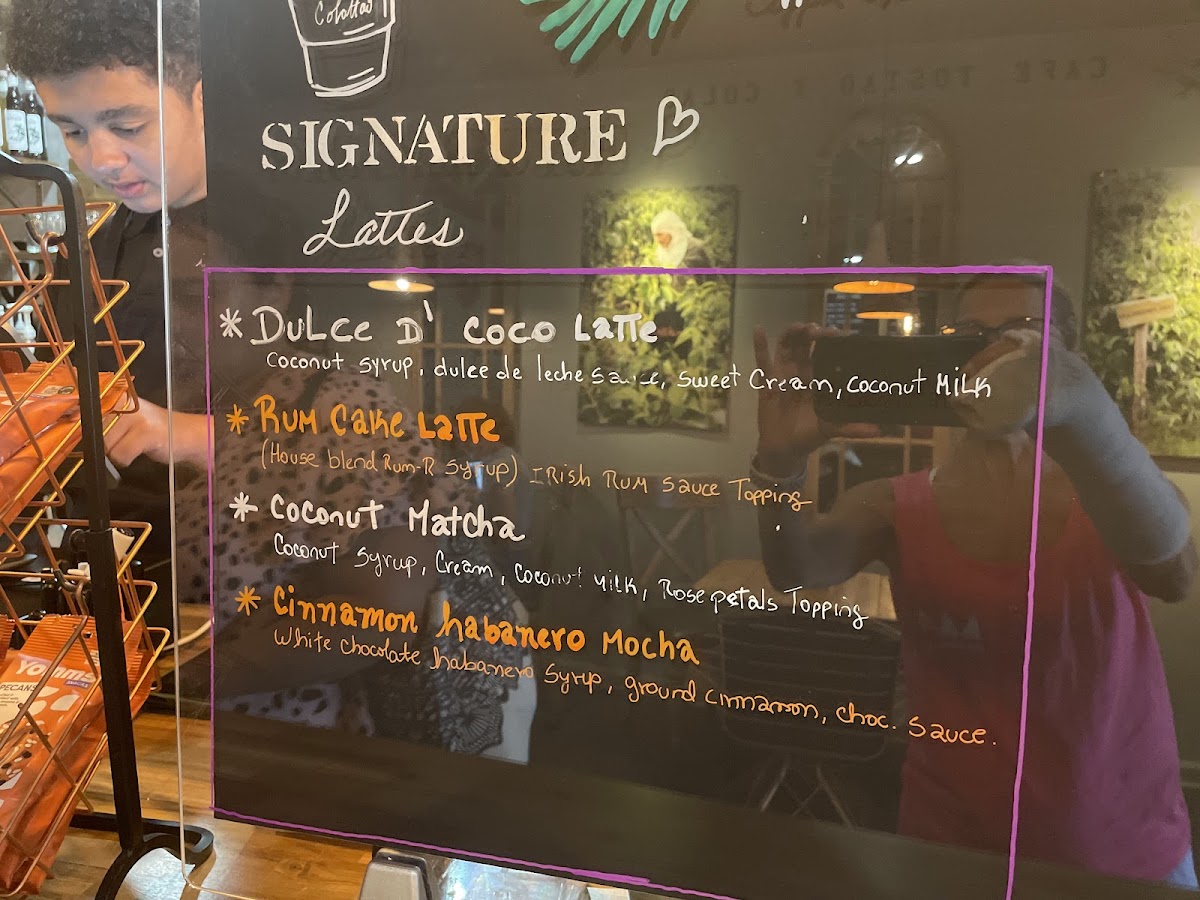 Colattao
SIGNATURE
Lattes
* DULCE D' COCO LATTE
Coconut syrup, dulce de leche sauce, sweet Cream, coconut MILK
* RUM CAKE LATTE
(House blend Rum-R Syrup) IRish RUM Sauce Topping
* COCONUT MATCHA
Coconut syrup, Cream, coconut MILK, Rose petals Topping
* Cinnamon habanero Mocha
White chocolate habanero syrup, ground cinnamon, choc. sauce.
CAFE TOSTAO Y COLAO
Yomms
SNACKS
PECANS